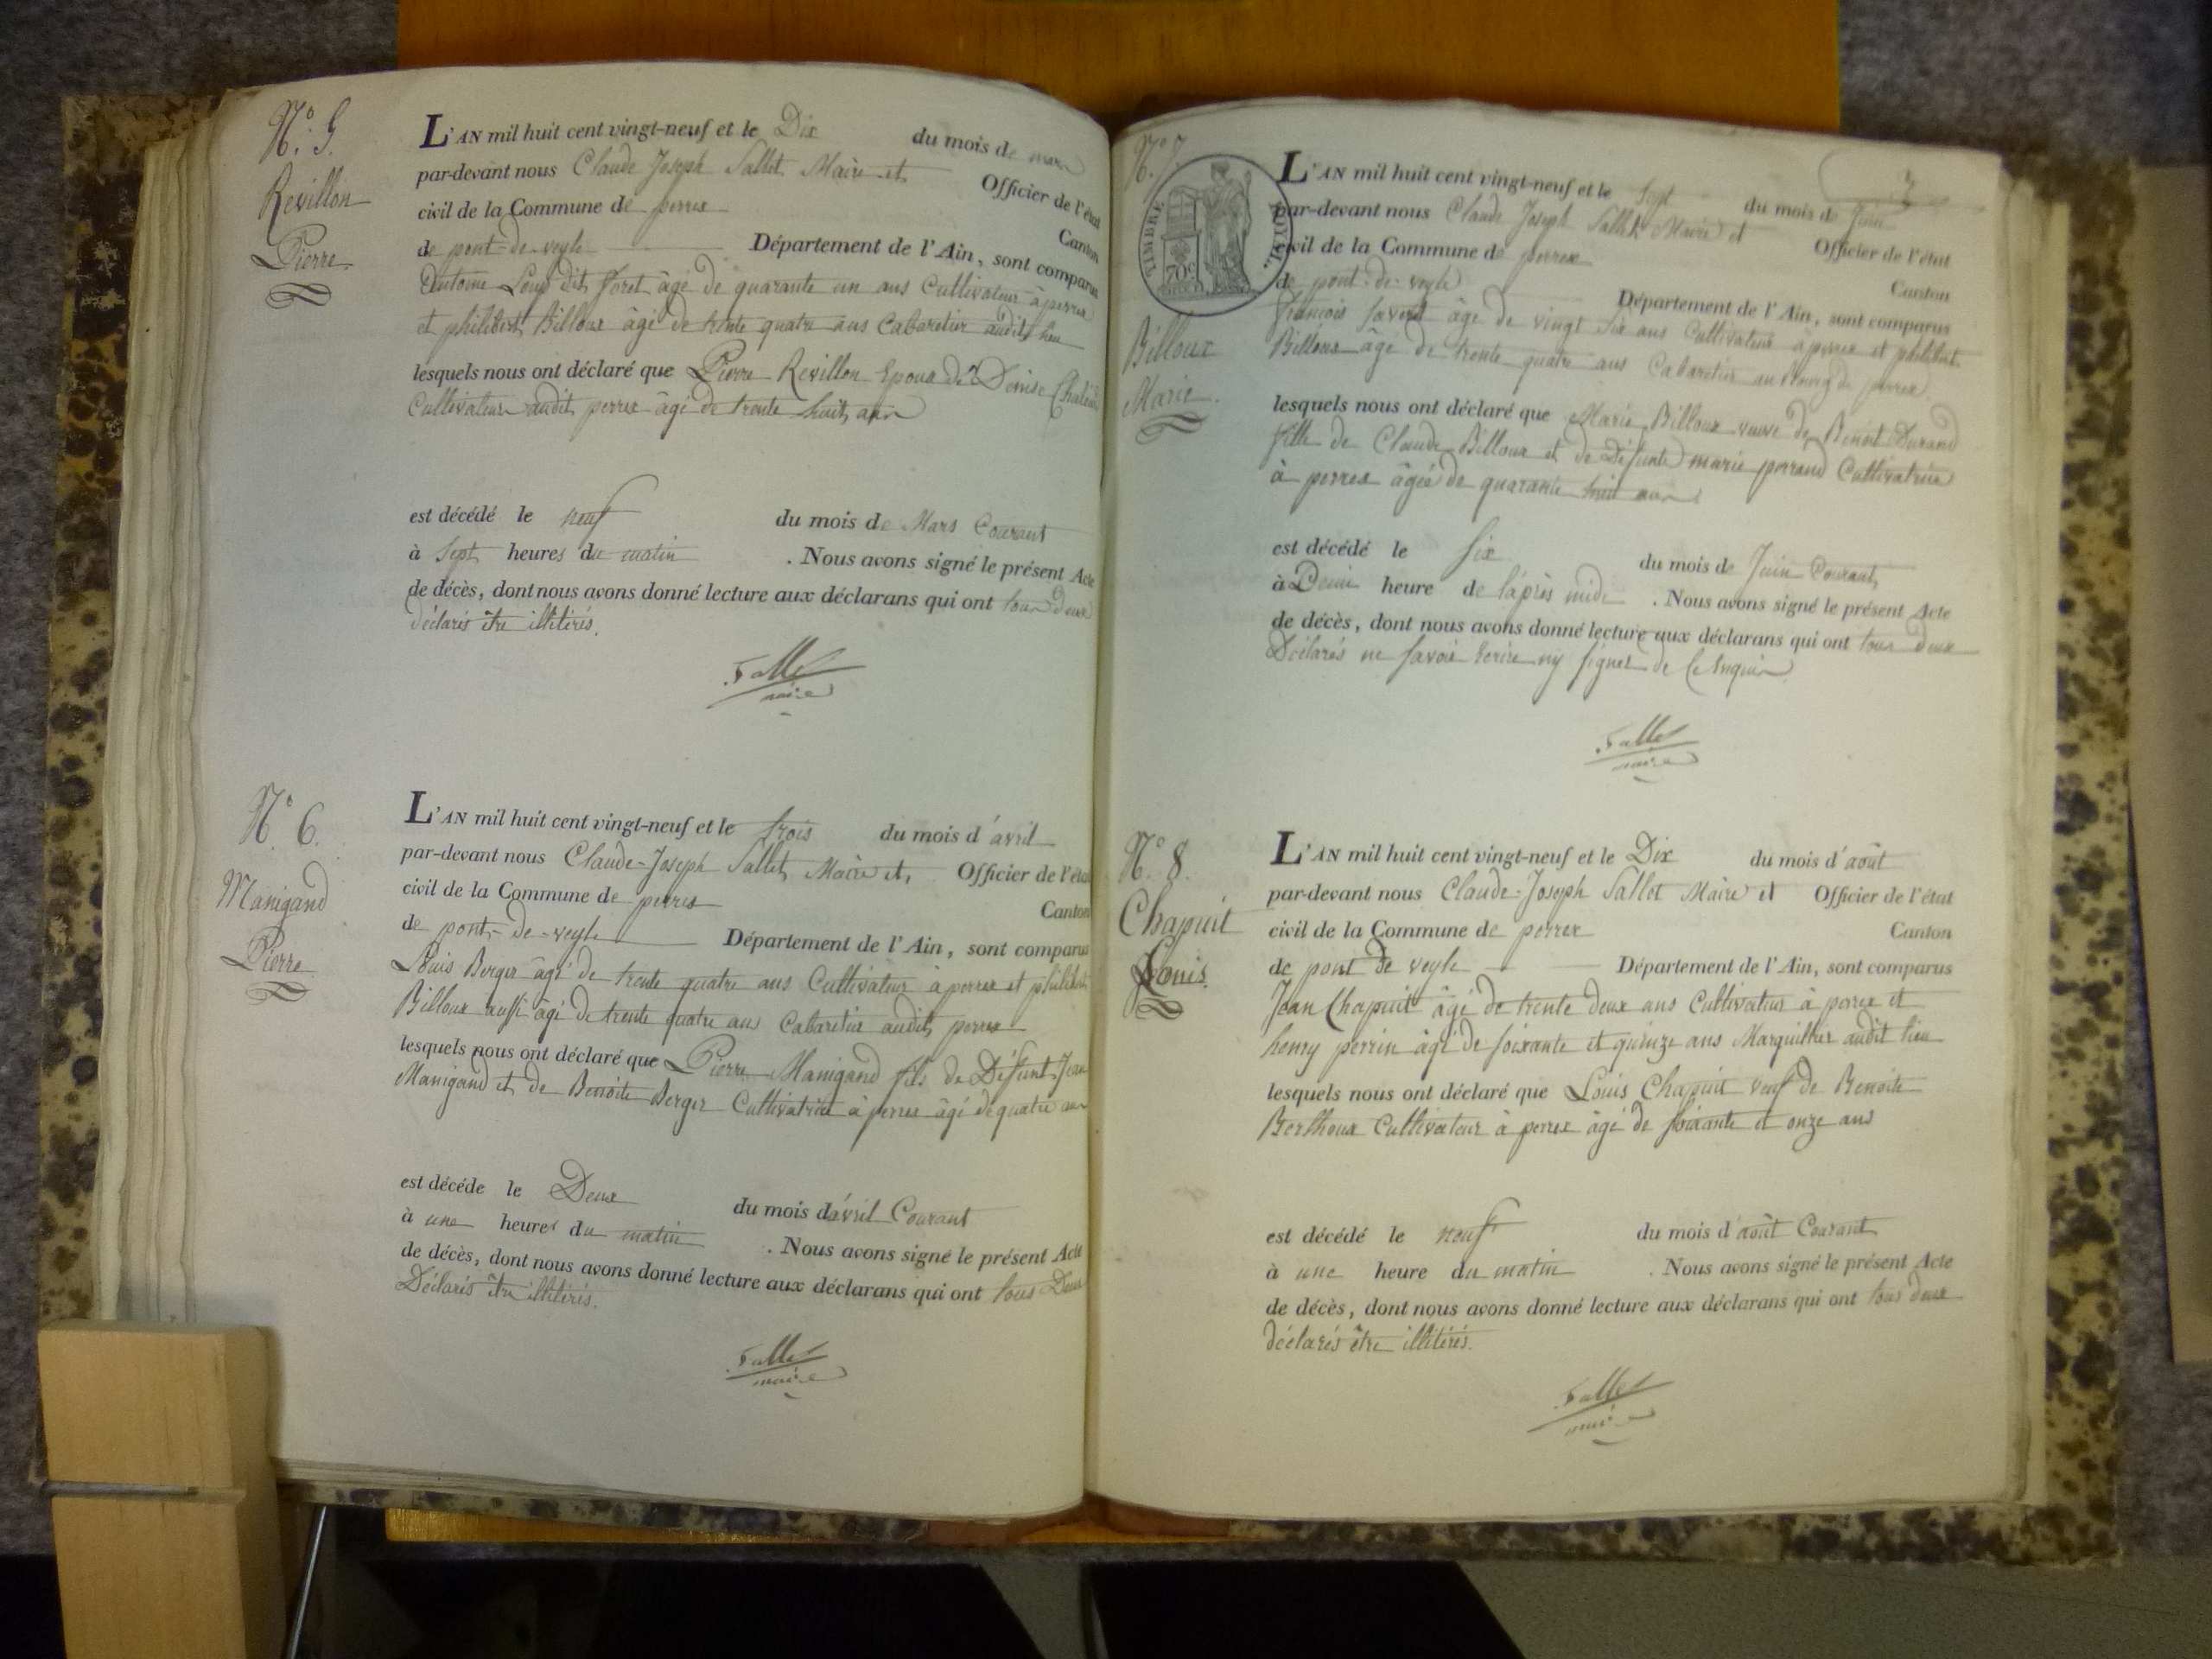 N.° 5.
Revillon
Pierre.
L'AN mil huit cent vingt-neuf et le Dix du mois de mars
par-devant nous Claude Joseph Sallet Maire et Officier de l'état
civil de la Commune de perrex Canton
de pont-de-veyle Département de l'Ain, sont comparus
Antoine Loup dit foret âgé de quarante un ans Cultivateur à perrex
et philibert Billoux âgé de trente quatre ans Cabaretier audit lieu
lesquels nous ont déclaré que Pierre Revillon Epoux de Denise
Cultivateur audit perrex âgé de trente huit ans
est décédé le neuf du mois de Mars Courant
à sept heures du matin . Nous avons signé le présent Acte
de décès, dont nous avons donné lecture aux déclarans qui ont tous deux
déclarés être illitérés.
Sallet
maire
N.° 6.
Manigand
Pierre
L'AN mil huit cent vingt-neuf et le trois du mois d'avril
par-devant nous Claude-Joseph Sallet Maire et, Officier de l'état
civil de la Commune de perrex Canton
de pont-de-veyle Département de l'Ain, sont comparus
Louis Berger âgé de trente quatre ans Cultivateur à perrex et philibert
Billoux aussi âgé de trente quatre ans Cabaretier audit perrex
lesquels nous ont déclaré que Pierre Manigand fils de Défunt Jean
Manigand et de Benoite Berger Cultivatrice à perrex âgé de quatre ans
est décédé le Deux du mois d'avril Courant
à une heures du matin . Nous avons signé le présent Acte
de décès, dont nous avons donné lecture aux déclarans qui ont tous Deux
Déclarés être illitérés.
Sallet
maire
3
N.° 7.
TIMBRE ROYAL
70c
Billoux
Marie.
L'AN mil huit cent vingt-neuf et le sept du mois de Juin
par-devant nous Claude Joseph Sallet Maire et Officier de l'état
civil de la Commune de perrex Canton
de pont-de-veyle Département de l'Ain, sont comparus
françois âgé de vingt six ans Cultivateur à perrex et philibert
Billoux âgé de trente quatre ans Cabaretier au bourg de perrex
lesquels nous ont déclaré que Marie Billoux veuve de Benoit Durand
fille de Claude Billoux et de Défunte marie perrand Cultivatrice
à perrex âgée de quarante huit ans
est décédé le six du mois de Juin Courant
à Demi heure de l'après midi . Nous avons signé le présent Acte
de décès, dont nous avons donné lecture aux déclarans qui ont tous deux
Déclarés ne savoir Ecrire ny signer de Ce Enquis
Sallet
maire
N.° 8.
Chapuit
Louis.
L'AN mil huit cent vingt-neuf et le Dix du mois d'août
par-devant nous Claude-Joseph Sallet Maire et Officier de l'état
civil de la Commune de perrex Canton
de pont de veyle Département de l'Ain, sont comparus
Jean Chapuit âgé de trente deux ans Cultivateur à perrex et
henry perrin âgé de soixante et quinze ans Marguillier audit lieu
lesquels nous ont déclaré que Louis Chapuit veuf de Benoite
Berthoux Cultivateur à perrex âgé de soixante et onze ans
est décédé le neuf du mois d'août Courant
à une heure du matin . Nous avons signé le présent Acte
de décès, dont nous avons donné lecture aux déclarans qui ont tous deux
déclarés être illitérés.
Sallet
maire